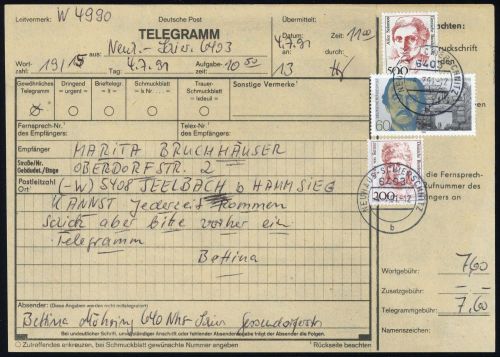 Leitvermerk: W 4990
Deutsche Post
TELEGRAMM
Übermittelt:
Datum: 4.7.91
Zeit: 11
an:
durch:
aus:
6403
Wort-
zahl: 19/15
4.7.91
Aufgabe/Zeit 10 50
13
Gewöhnliches Telegramm
Dringend
= urgent =
Briefteleg.
= lt =
Schmuckblatt
= lx Nr. =
Trauer-
Schmuckblatt
= lxdeuil =
Sonstige Vermerke¹)
Fernsprech-Nr.
des Empfängers:
Empfänger
MARITA BRUCHHÄUSER
Straße/Nr.
Gebäudet./Etage
OBERDORFSTR. 2
Postleitzahl
Ort
(-W) 5908 SEELBACH b HAMMSIEG
KANNST Jederzeit kommen
Schick aber Bitte vorher ein
Telegramm
Bettina
Absender: (Diese Angaben werden nicht mittelegrafiert)
Bettina Möhring 640 Nhs
Bei undeutlicher Schrift, unvollständiger Anschrift oder fehlender Absenderangabe trägt der Absender die Folgen.
Zutreffendes ankreuzen, bei Schmuckblatt gewünschte Nummer eintragen.
¹) Rückseite beachten
500
60
200
NEUHAUS-SCHIERSCHNITZ
6403
b
achten:
ruckschrift
die Fernsprech-
rufnummer des
ängers an
Wortgebühr: 7,60
Zusatzgebühr: – –
Telegrammgebühr: 7,60
Namenszeichen: